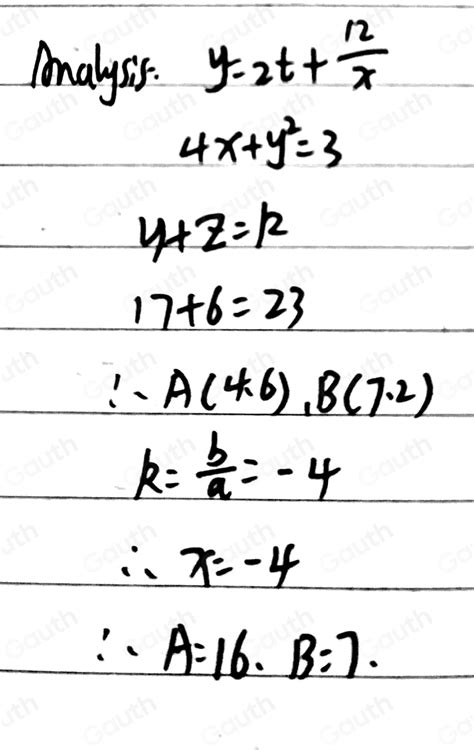 Analysis. y=2t+12/x
4x+y²=3
y+z=12
17+6=23
∴ A(4.6), B(7.2)
k=b/a=-4
∴ x=-4
∴ A=16. B=7.